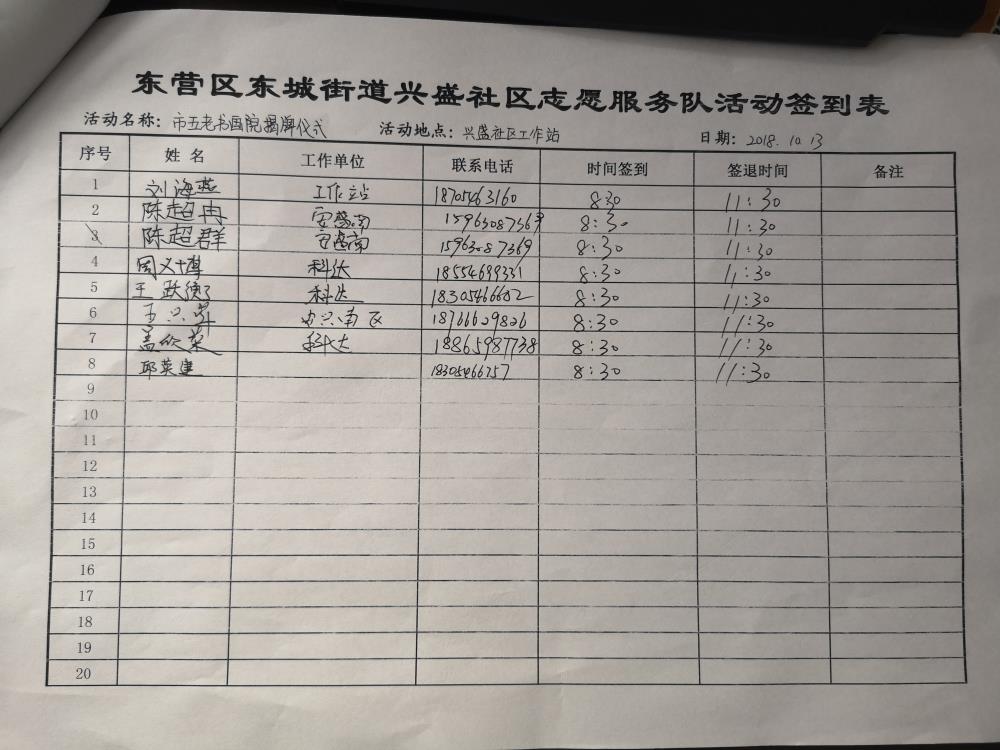 东营区东城街道兴盛社区志愿服务队活动签到表
活动名称：市五老书画院揭牌仪式 活动地点：兴盛社区工作站 日期：2018.10.13
序号 姓名 工作单位 联系电话 时间签到 签退时间 备注
1 刘海燕 工作站 18705463160 830 11:30
2 陈超冉 安盛南 8:30 11:30
3 陈超群 安盛南 15963087369 8:30 11:30
4 周义博 科达 18554699331 8:30 11:30
5 王跃德 科达 18305466602 8:30 11:30
6 王 18766629826 8:30 11:30
7 孟欣荣 科达 18865987738 8:30 11:30
8 邱英建 18305466257 8:30 11:30
9
10
11
12
13
14
15
16
17
18
19
20